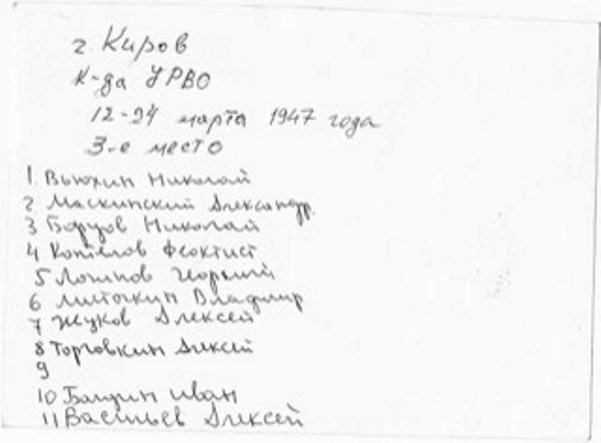 г. Киров
К-да УРВО
12-24 марта 1947 года
3-е место
1. Вьюхин Николай
2 Маскинский Александр.
3 Борцов Николай
4 Коптелов Феоктист
5 Логинов Георгий
6 Листочкин Владимир
7 Жуков Алексей
8 Торговкин Алексей
9
10 Иван
11 Васильев Алексей